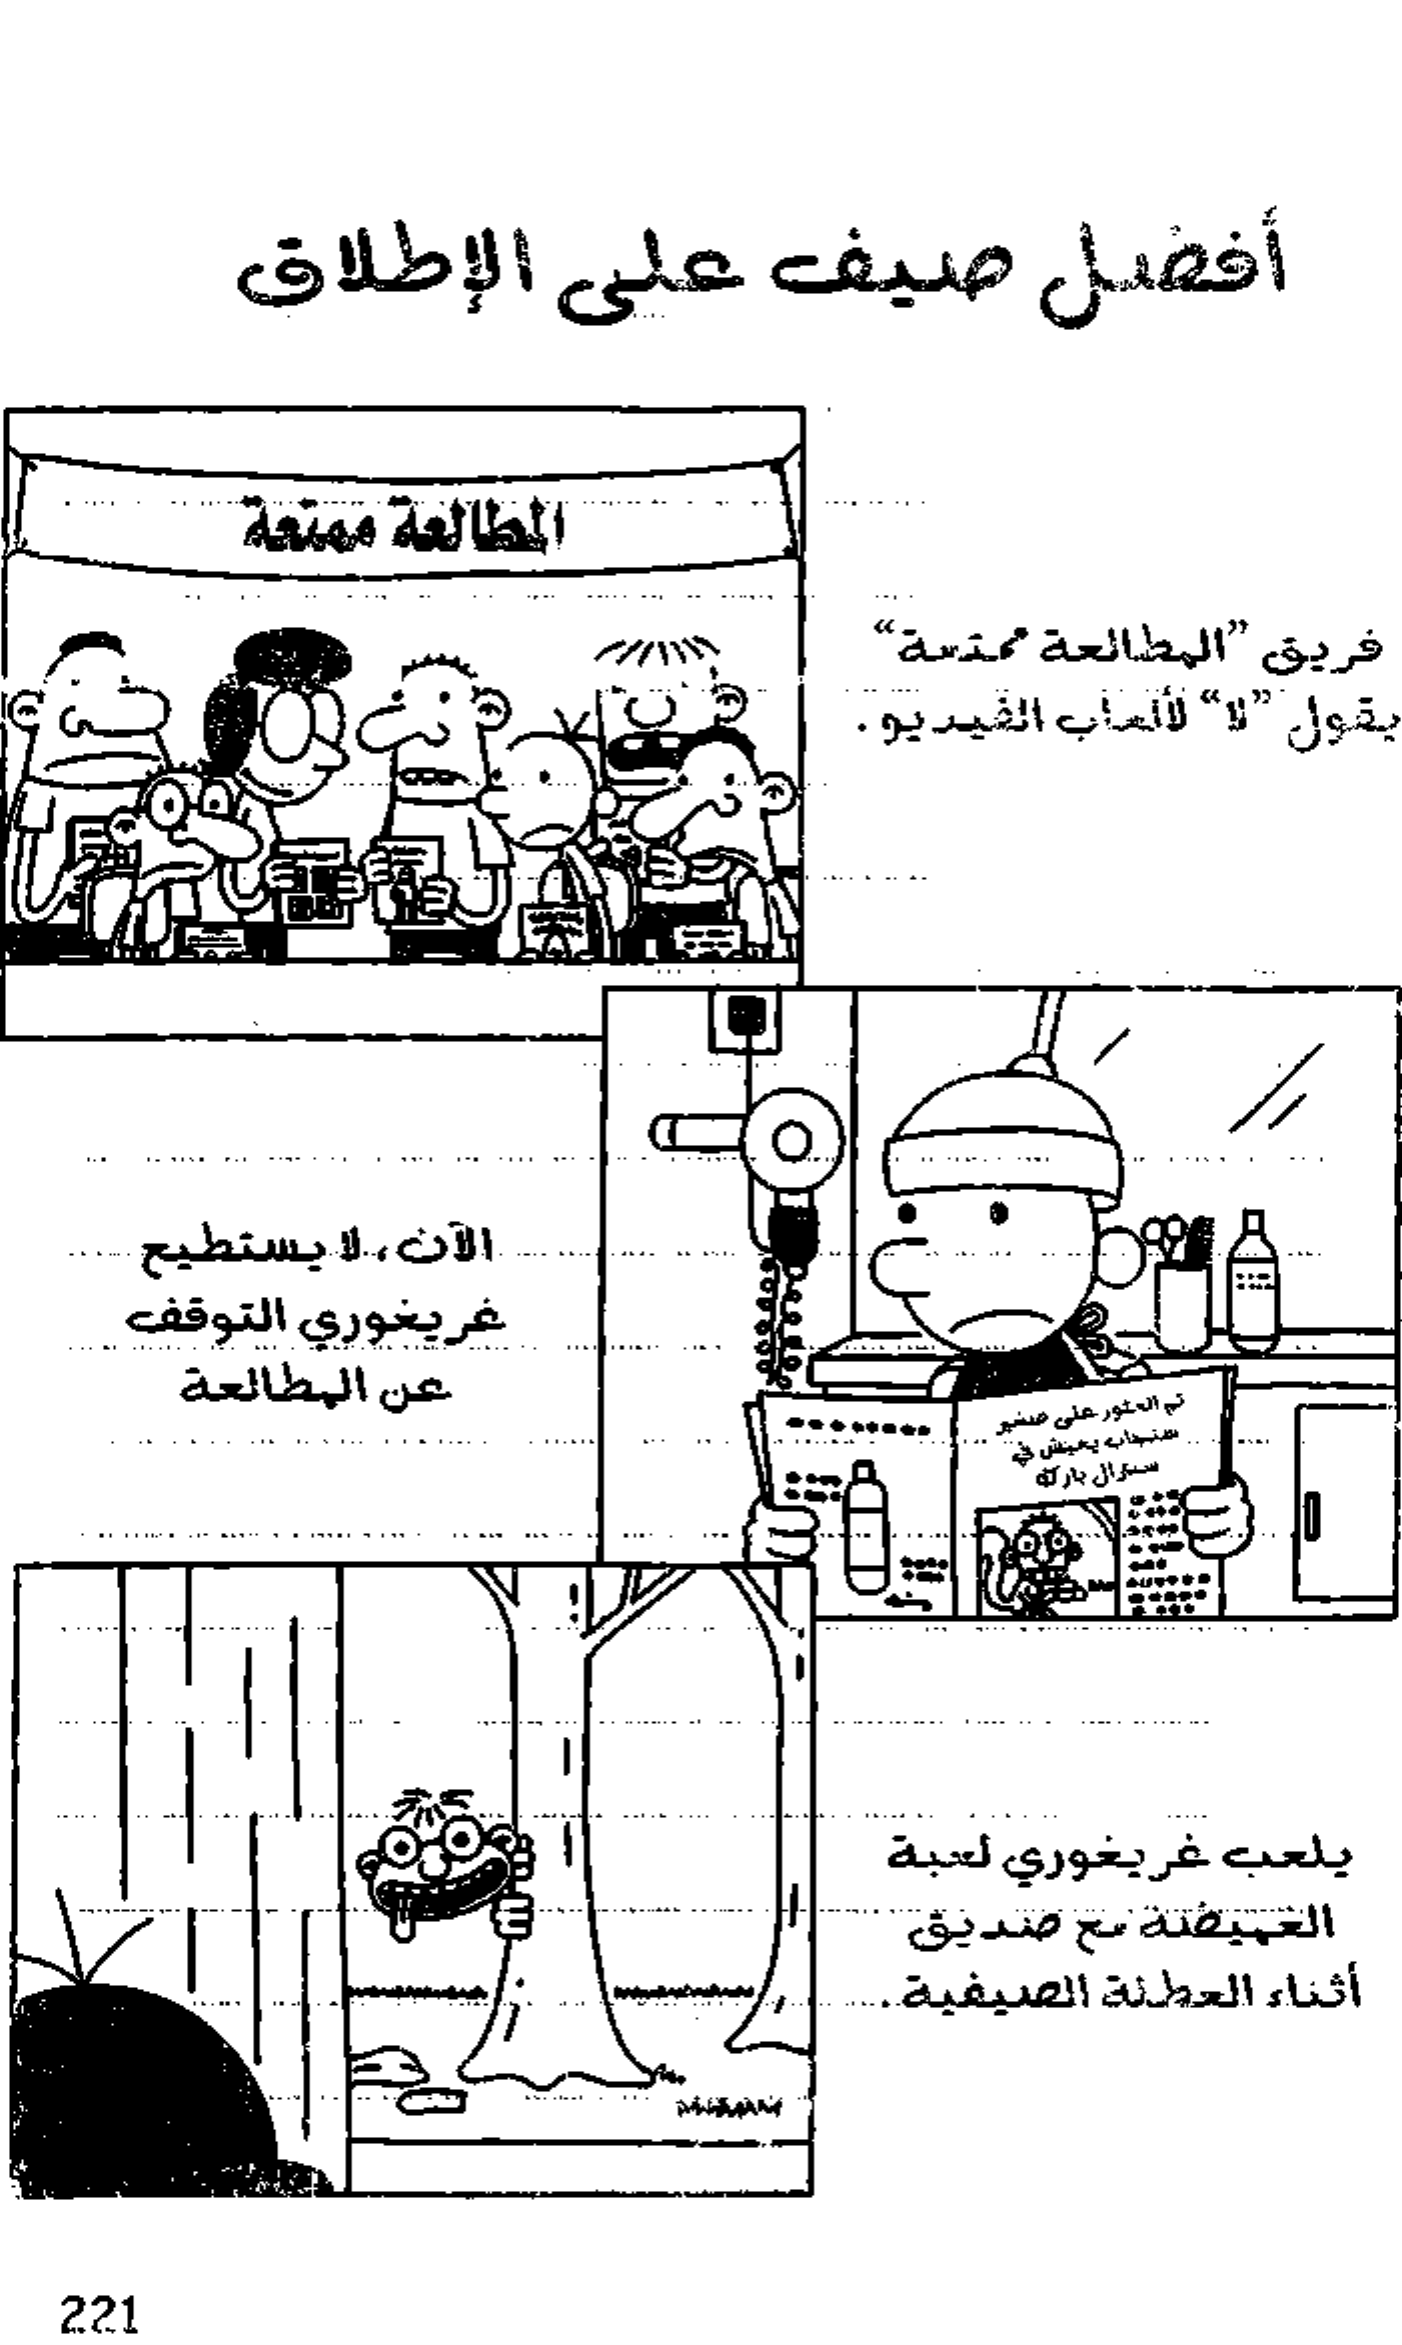 أفضل صيف على الإطلاق
المطالعة ممتعة
فريق "المطالعة ممتعة"
يقول "لا" لألعاب الفيديو.
الآن، لا يستطيع
غريغوري التوقف
عن المطالعة
تم العثور على صغير
سنجاب يعيش في
سنترال بارك
يلعب غريغوري لعبة
الغميضة مع صديق
أثناء العطلة الصيفية.
221